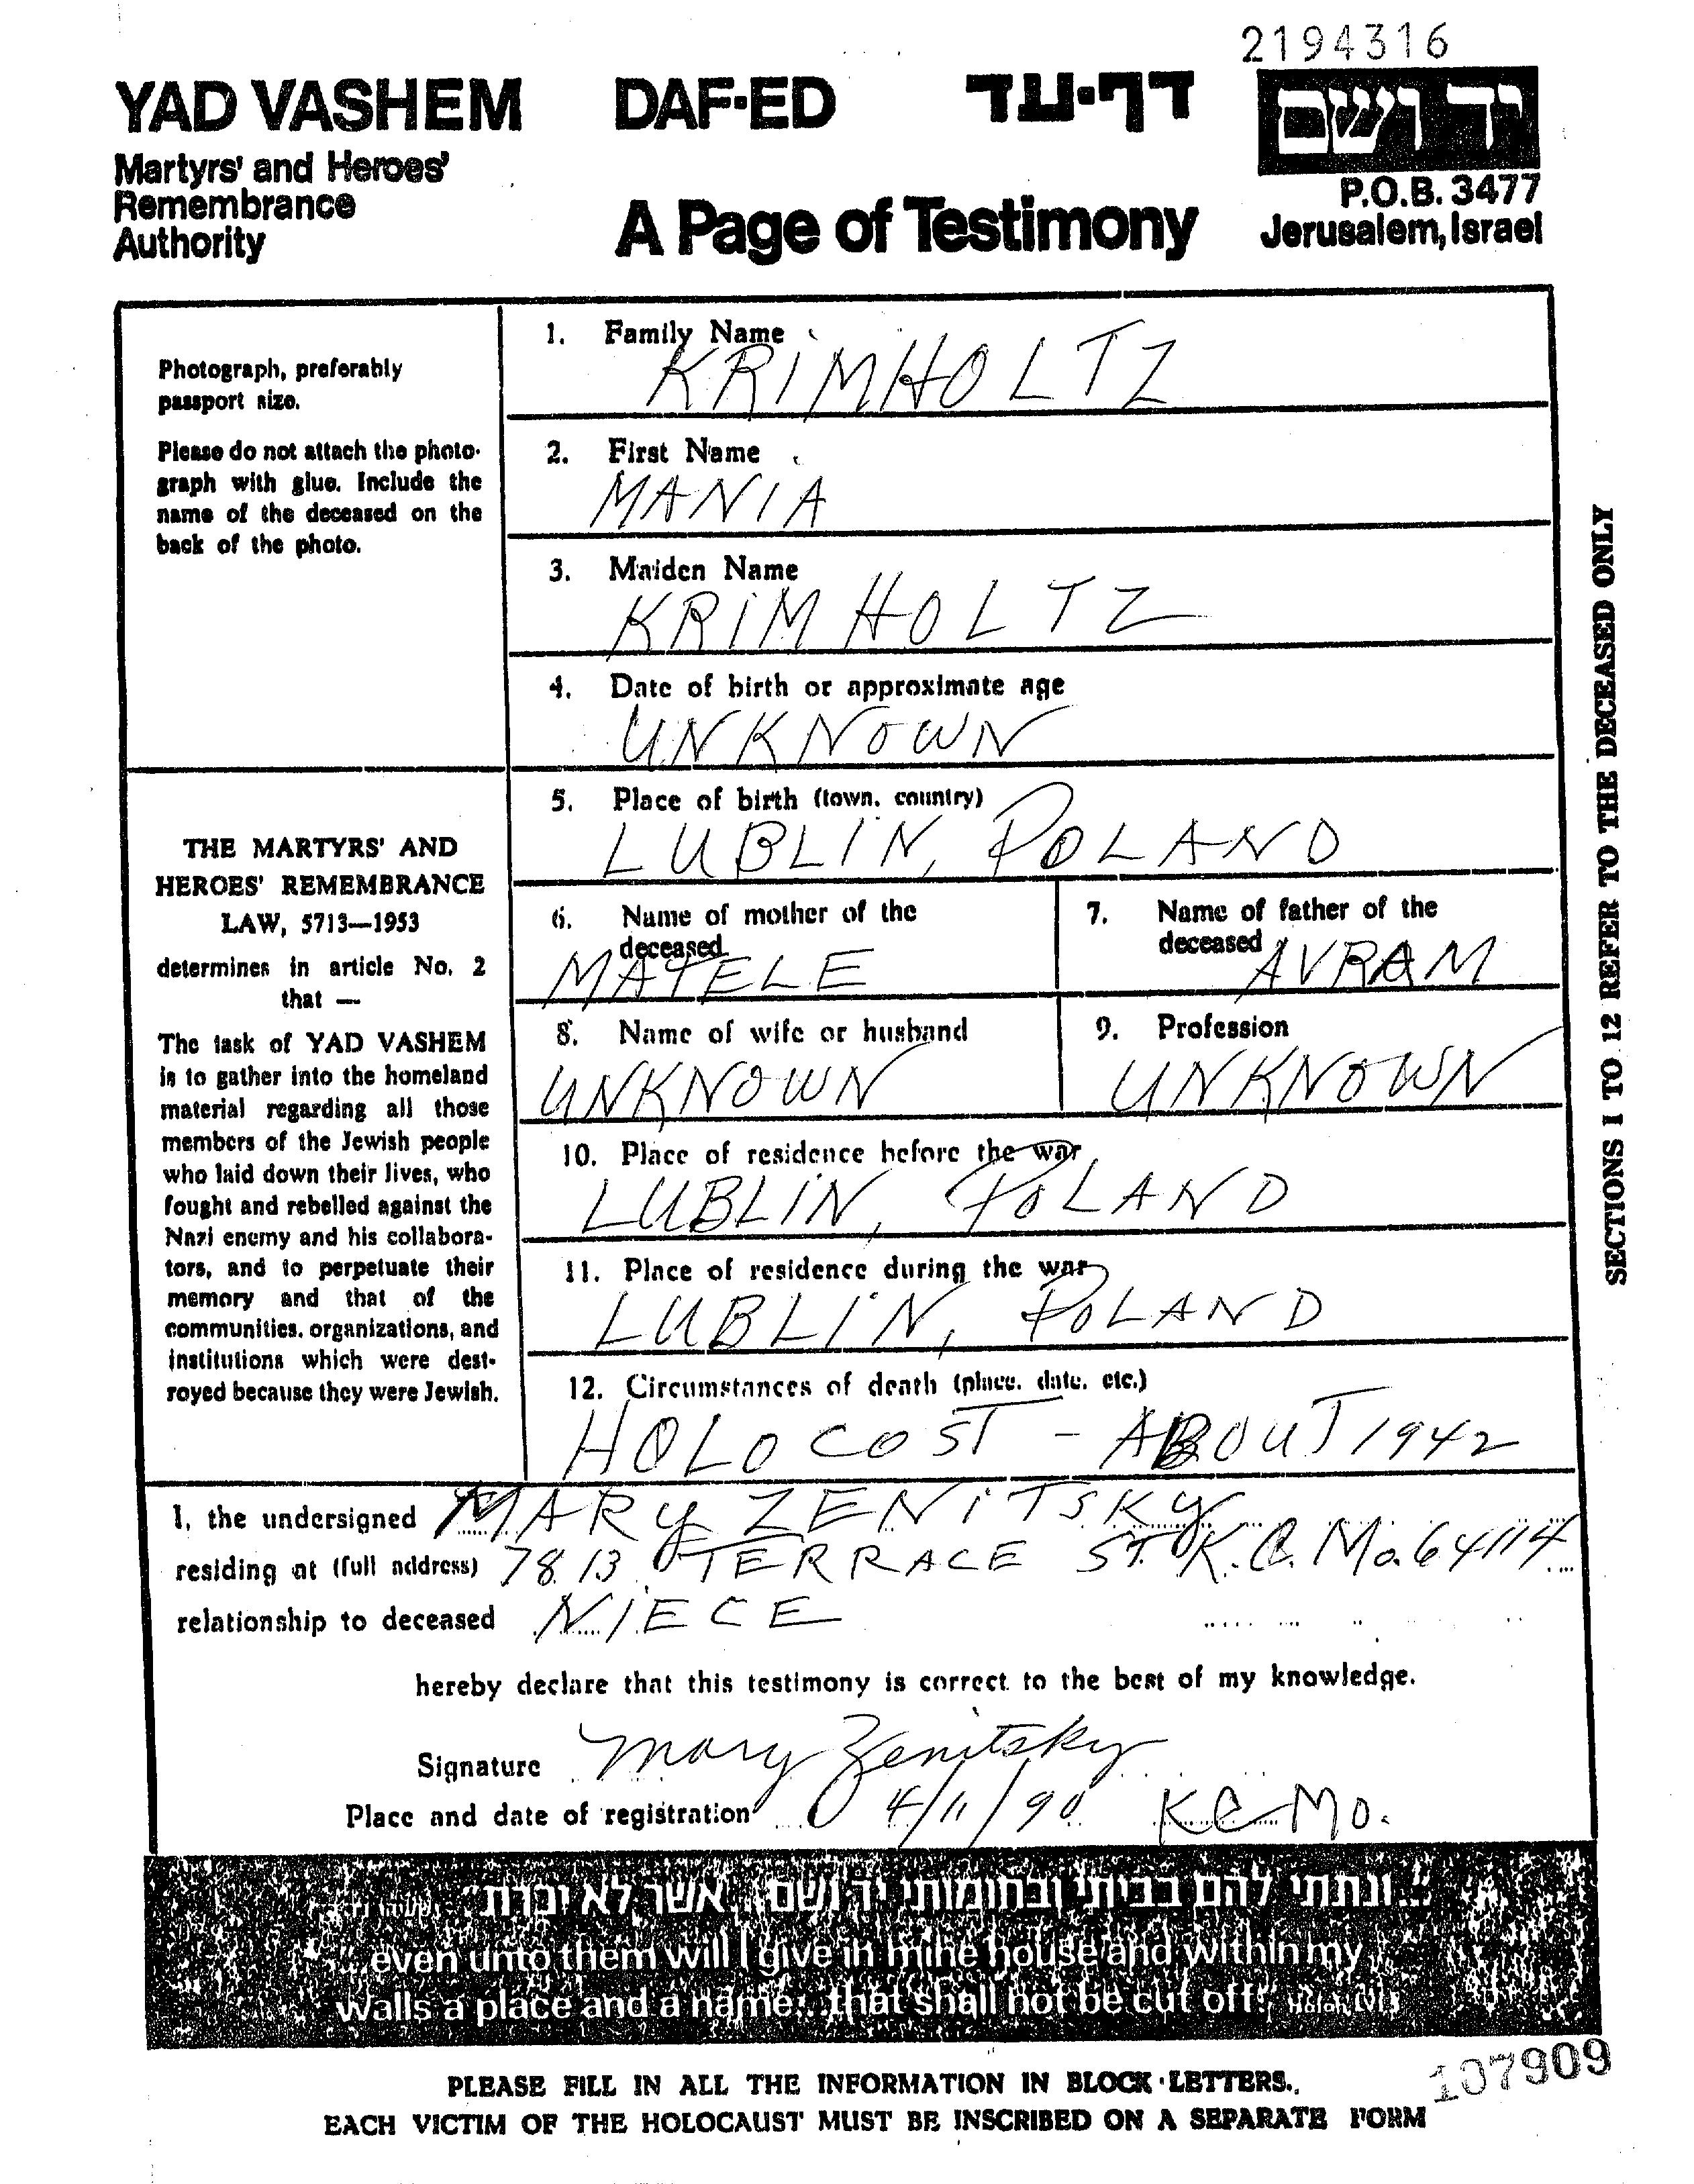 2194316
YAD VASHEM DAF-ED דף-עד
יד ושם
Martyrs' and Heroes'
Remembrance
Authority
A Page of Testimony
P.O.B. 3477
Jerusalem, Israel
Photograph, preferably
passport size.
Please do not attach the photo-
graph with glue. Include the
name of the deceased on the
back of the photo.
THE MARTYRS' AND
HEROES' REMEMBRANCE
LAW, 5713—1953
determines in article No. 2
that —
The task of YAD VASHEM
is to gather into the homeland
material regarding all those
members of the Jewish people
who laid down their lives, who
fought and rebelled against the
Nazi enemy and his collabora-
tors, and to perpetuate their
memory and that of the
communities, organizations, and
institutions which were dest-
royed because they were Jewish.
1. Family Name
KRIMHOLTZ
2. First Name
MANIA
3. Maiden Name
KRIMHOLTZ
4. Date of birth or approximate age
UNKNOWN
5. Place of birth (town, country)
LUBLIN, POLAND
6. Name of mother of the
deceased
MATELE
7. Name of father of the
deceased AVRAM
8. Name of wife or husband
UNKNOWN
9. Profession
UNKNOWN
10. Place of residence before the war
LUBLIN, POLAND
11. Place of residence during the war
LUBLIN, POLAND
12. Circumstances of death (place, date, etc.)
HOLOCOST - ABOUT 1942
SECTIONS 1 TO 12 REFER TO THE DECEASED ONLY
I, the undersigned MARY ZENITSKY
residing at (full address) 7813 TERRACE ST. K.C. Mo. 64114
relationship to deceased NIECE
hereby declare that this testimony is correct to the best of my knowledge.
Signature Mary Zenitsky
Place and date of registration 4/11/90 KC Mo.
"ונתתי להם בביתי ובחומותי יד ושם... אשר לא יכרת"
"...even unto them will I give in mine house and within my
walls a place and a name...that shall not be cut off."
107909
PLEASE FILL IN ALL THE INFORMATION IN BLOCK LETTERS.
EACH VICTIM OF THE HOLOCAUST MUST BE INSCRIBED ON A SEPARATE FORM